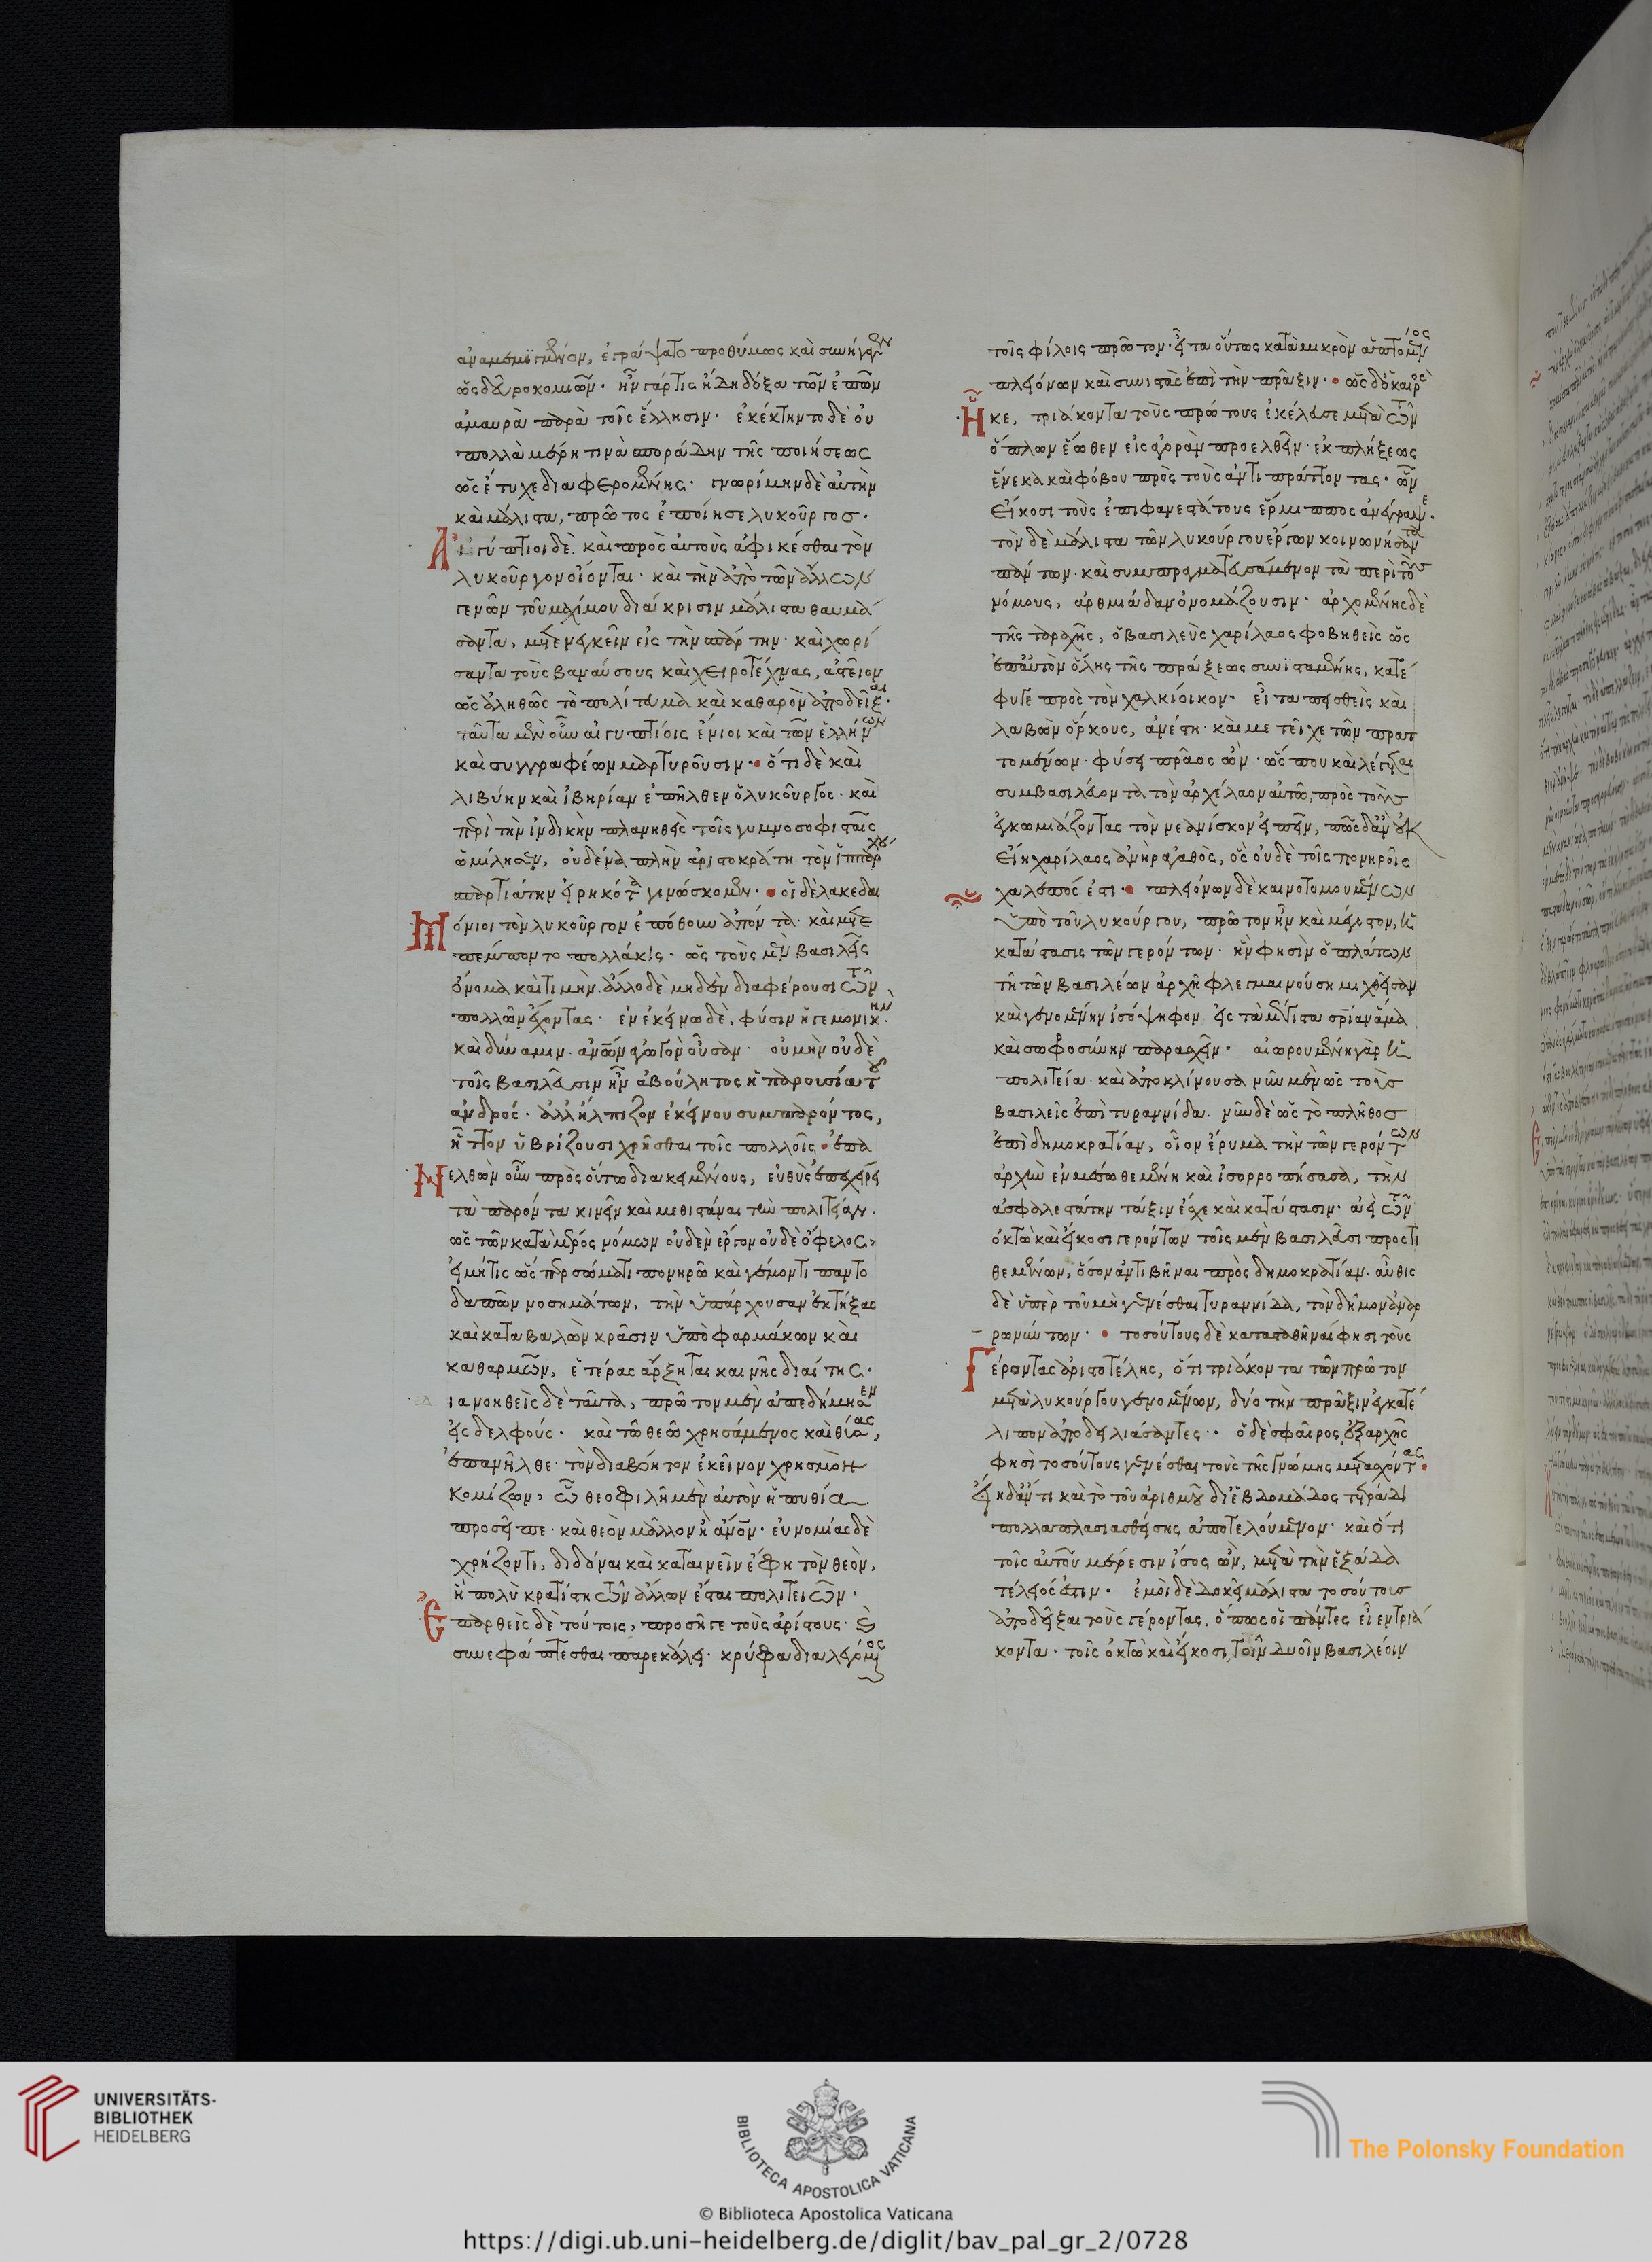 ἀναμεμιγμένον, ἐγράψατο προθύμως καὶ συνήγαγεν
ὡς δεῦρο κομιῶν· ἦν γάρ τις ἤδη δόξα τῶν ἐπῶν
ἀμαυρὰ παρὰ τοῖς ἕλλησιν· ἐκέκτηντο δὲ οὐ
πολλὰ μέρη τινὰ σποράδην τῆς ποιήσεως
ὡς ἔτυχε διαφερομένης· γνωρίμην δὲ αὐτὴν
καὶ μάλιστα, πρῶτος ἐποίησε λυκοῦργος.
Αἰγύπτιοι δὲ καὶ πρὸς αὐτοὺς ἀφικέσθαι τὸν
λυκοῦργον οἴονται· καὶ τὴν ἀπὸ τῶν ἄλλων
γενῶν τοῦ μαχίμου διάκρισιν μάλιστα θαυμά
σαντα, μετενεγκεῖν εἰς τὴν σπάρτην· καὶ χωρί
σαντα τοὺς βαναύσους καὶ χειροτέχνας, ἀστεῖον
ὡς ἀληθῶς τὸ πολίτευμα καὶ καθαρὸν ἀποδεῖξαι.
ταῦτα μὲν οὖν αἰγυπτίοις ἔνιοι καὶ τῶν ἑλλήνων
καὶ συγγραφέων μαρτυροῦσιν· ὅτι δὲ καὶ
λιβύην καὶ ἰβηρίαν ἐπῆλθεν ὁ λυκοῦργος· καὶ
περὶ τὴν ἰνδικὴν πλανηθεὶς τοῖς γυμνοσοφισταῖς
ὡμίλησεν, οὐδένα πλὴν ἀριστοκράτη τὸν ἱππάρχου
σπαρτιάτην εἰρηκότα γινώσκομεν· οἱ δὲ λακεδαι
Μόνιοι τὸν λυκοῦργον ἐπόθουν ἀπόντα· καὶ μετε
πέμποντο πολλάκις· ὡς τοὺς μὲν βασιλεῖς
ὄνομα καὶ τιμὴν. ἄλλο δὲ μηδὲν διαφέρουσι τῶν
πολλῶν ἔχοντας· ἐν ἐκείνῳ δὲ, φύσιν ἡγεμονικὴν.
καὶ δύναμιν. ἀνθρώπων ἀγωγὸν οὖσαν· οὐ μὴν οὐδὲ
τοῖς βασιλεῦσιν ἦν ἀβούλητος ἡ παρουσία τοῦ
ἀνδρός· ἀλλ' ἤλπιζον ἐκείνου συμπαρόντος,
ἧττον ὑβρίζουσι χρῆσθαι τοῖς πολλοῖς· ἐπα
Νελθὼν οὖν πρὸς οὕτω διακειμένους, εὐθὺς ἐπεχείρει
τὰ παρόντα κινεῖν καὶ μεθιστάναι τὴν πολιτείαν.
ὡς τῶν κατὰ μέρος νόμων οὐδὲν ἔργον οὐδὲ ὄφελος,
εἰ μή τις ὥσπερ σώματι πονηρῷ καὶ γέμοντι παντο
δαπῶν νοσημάτων, τὴν ὑπάρχουσαν ἐκτήξας
καὶ καταβαλὼν κρᾶσιν ὑπὸ φαρμάκων καὶ
καθαρμῶν, ἑτέρας ἄρξηται καινῆς διαίτης.
ιανοηθεὶς δὲ ταῦτα, πρῶτον μὲν ἀπεδήμησεν
εἰς δελφούς· καὶ τῷ θεῷ χρησάμενος καὶ θύσας,
ἐπανῆλθε· τὸν διαβόητον ἐκεῖνον χρησμὸν
κομίζων, ᾧ θεοφιλῆ μὲν αὐτὸν ἡ πυθία
προσεῖπε· καὶ θεὸν μᾶλλον ἢ ἄνθρωπον· εὐνομίας δὲ
χρήζοντι, διδόναι καὶ καταινεῖν ἔφη τὸν θεὸν,
ἣ πολὺ κρατίστη τῶν ἄλλων ἔσται πολιτειῶν.
Ἐπαρθεὶς δὲ τούτοις, προσῆγε τοὺς ἀρίστους· καὶ
συνεφάπτεσθαι παρεκάλει· κρύφα διαλεγόμενος
τοῖς φίλοις πρῶτον· εἶτα οὕτως κατὰ μικρὸν ἁπτόμενος
πλειόνων καὶ συνιστὰς ἐπὶ τὴν πρᾶξιν· ὡς δ' ὁ καιρὸς
Ἧκε, τριάκοντα τοὺς πρώτους ἐκέλευσε μετὰ τῶν
ὅπλων ἕωθεν εἰς ἀγορὰν προελθεῖν· ἐκπλήξεως
ἕνεκα καὶ φόβου πρὸς τοὺς ἀντιπράττοντας· ὧν
εἴκοσι τοὺς ἐπιφανεστάτους ἕρμιππος ἀνέγραψε.
τὸν δὲ μάλιστα τῶν λυκούργου ἔργων κοινωνήσαντα
πάντων· καὶ συμπραγματευσάμενον τὰ περὶ τοὺς
νόμους, ἀρθμιάδαν ὀνομάζουσιν· ἀρχομένης δὲ
τῆς ταραχῆς, ὁ βασιλεὺς χαρίλαος φοβηθεὶς ὡς
ἐπ' αὐτὸν ὅλης τῆς πράξεως συνισταμένης, κατέ
φυγε πρὸς τὸν χαλκίοικον· εἶτα πεισθεὶς καὶ
λαβὼν ὅρκους, ἀνέστη· καὶ μετεῖχε τῶν πρατ
τομένων· φύσει πρᾶος ὤν· ὥς που καὶ λέγεται
συμβασιλεύοντα τὸν ἀρχέλαον αὐτῷ, πρὸς τοὺς
ἐγκωμιάζοντας τὸν νεανίσκον εἰπεῖν, πῶς δ' ἂν οὐκ
εἴη χαρίλαος ἀνὴρ ἀγαθὸς, ὃς οὐδὲ τοῖς πονηροῖς
χαλεπός ἐστι· πλειόνων δὲ καινοτομουμένων
ὑπὸ τοῦ λυκούργου, πρῶτον ἦν καὶ μέγιστον, ἡ
κατάστασις τῶν γερόντων· ἥν φησιν ὁ πλάτων
τῇ τῶν βασιλέων ἀρχῇ φλεγμαινούσῃ μιχθεῖσαν
καὶ γενομένην ἰσόψηφον εἰς τὰ μέγιστα σωτηρίαν ἅμα
καὶ σωφροσύνην παρασχεῖν· αἰωρουμένη γὰρ ἡ
πολιτεία· καὶ ἀποκλίνουσα νῦν μὲν ὡς τοὺς
βασιλεῖς ἐπὶ τυραννίδα. νῦν δὲ ὡς τὸ πλῆθος
ἐπὶ δημοκρατίαν, οἷον ἕρμα τὴν τῶν γερόντων
ἀρχὴν ἐν μέσῳ θεμένη καὶ ἰσορροπήσασα, τὴν
ἀσφαλεστάτην τάξιν ἔσχε καὶ κατάστασιν· ἀεὶ τῶν
ὀκτὼ καὶ εἴκοσι γερόντων τοῖς μὲν βασιλεῦσι προστι
θεμένων, ὅσον ἀντιβῆναι πρὸς δημοκρατίαν. αὖθις
δὲ ὑπὲρ τοῦ μὴ γενέσθαι τυραννίδα, τὸν δῆμον ἀναρ
ρωνύντων· τοσούτους δὲ κατασταθῆναί φησι τοὺς
Γέροντας ἀριστοτέλης, ὅτι τριάκοντα τῶν πρώτων
μετὰ λυκούργου γενομένων, δύο τὴν πρᾶξιν ἐγκατέ
λιπον ἀποδειλιάσαντες· ὁ δὲ σφαῖρος, ἐξ ἀρχῆς
φησὶ τοσούτους γενέσθαι τοὺς τῆς γνώμης μετασχόντας
εἴη δ' ἄν τι καὶ τὸ τοῦ ἀριθμοῦ δι' ἑβδομάδος τετράδι
πολλαπλασιασθείσης ἀποτελούμενον· καὶ ὅτι
τοῖς αὑτοῦ μέρεσιν ἴσος ὢν, μετὰ τὴν ἑξάδα
τέλειός ἐστιν· ἐμοὶ δὲ δοκεῖ μάλιστα τοσούτους
ἀποδεῖξαι τοὺς γέροντας. ὅπως οἱ πάντες εἶεν τριά
κοντα· τοῖς ὀκτὼ καὶ εἴκοσι, τοῖν δυοῖν βασιλέοιν
UNIVERSITÄTS-
BIBLIOTHEK
HEIDELBERG
BIBLIOTECA APOSTOLICA VATICANA
The Polonsky Foundation
© Biblioteca Apostolica Vaticana
https://digi.ub.uni-heidelberg.de/diglit/bav_pal_gr_2/0728